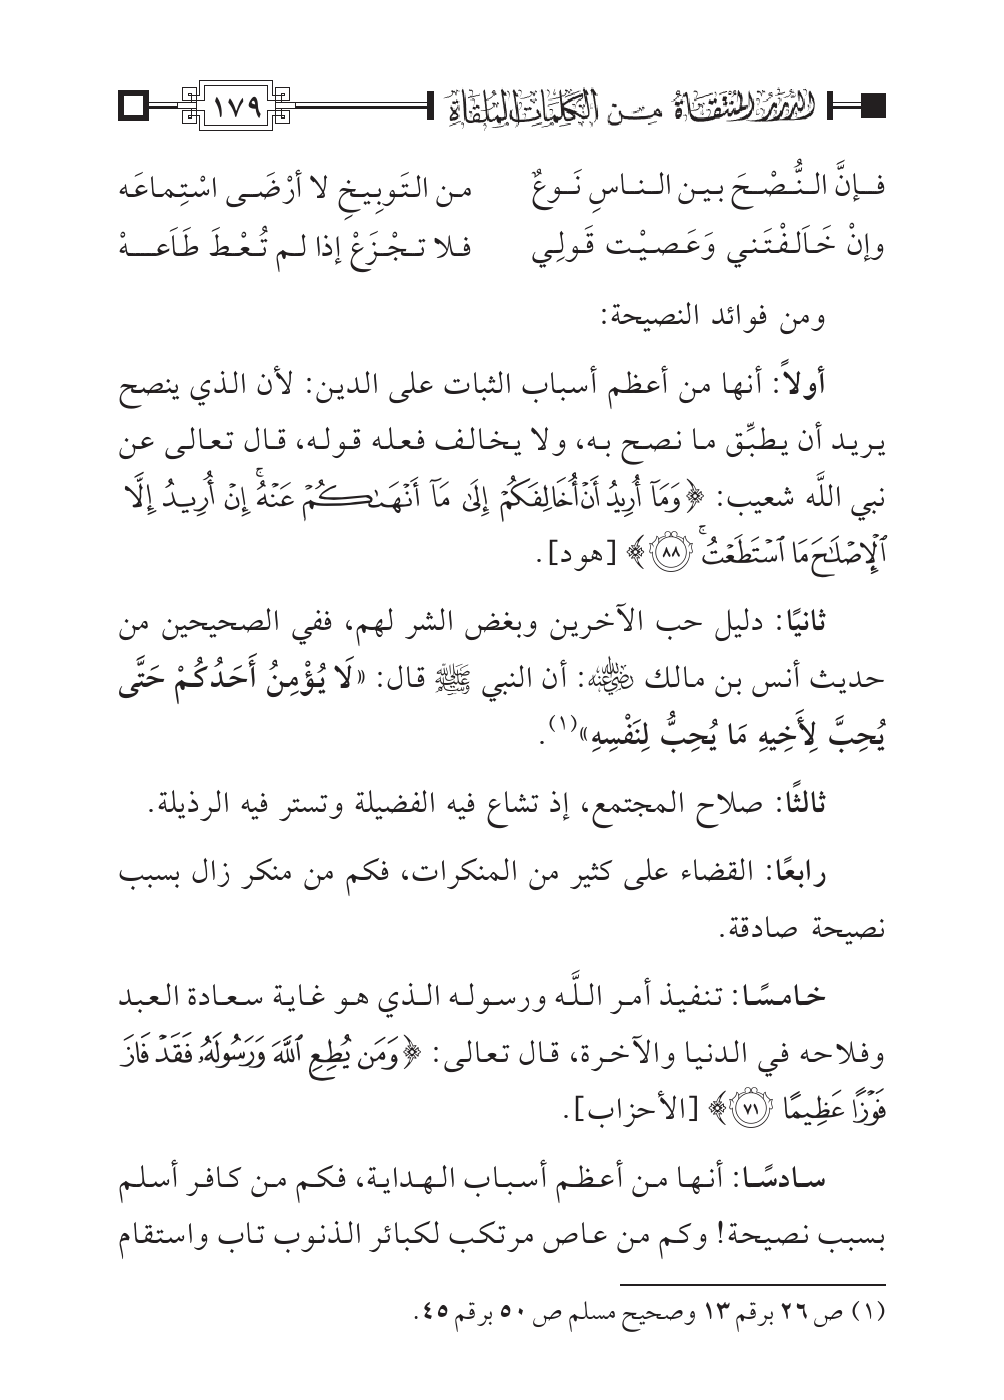 الدُّرَرُ المُنْتَقَاةُ مِنَ الكَلِمَاتِ المُلْقَاةِ ١٧٩
فـإنَّ النُّصْحَ بين الناسِ نَوعٌ من التَوبِيخِ لا أرْضَى اسْتِماعَه
وإنْ خَالَفْتَني وَعَصيْت قَولِي فلا تجْزَعْ إذا لم تُعْطَ طَاعَهْ
ومن فوائد النصيحة:
أولاً: أنها من أعظم أسباب الثبات على الدين: لأن الذي ينصح
يريد أن يطبِّق ما نصح به، ولا يخالف فعله قوله، قال تعالى عن
نبي اللَّه شعيب: ﴿وَمَآ أُرِيدُ أَنۡ أُخَالِفَكُمۡ إِلَىٰ مَآ أَنۡهَىٰكُمۡ عَنۡهُۚ إِنۡ أُرِيدُ إِلَّا
ٱلۡإِصۡلَٰحَ مَا ٱسۡتَطَعۡتُۚ ٨٨﴾ [هود].
ثانيًا: دليل حب الآخرين وبغض الشر لهم، ففي الصحيحين من
حديث أنس بن مالك رضي الله عنه: أن النبي ﷺ قال: «لَا يُؤْمِنُ أَحَدُكُمْ حَتَّى
يُحِبَّ لِأَخِيهِ مَا يُحِبُّ لِنَفْسِهِ»(١).
ثالثًا: صلاح المجتمع، إذ تشاع فيه الفضيلة وتستر فيه الرذيلة.
رابعًا: القضاء على كثير من المنكرات، فكم من منكر زال بسبب
نصيحة صادقة.
خامسًا: تنفيذ أمر اللَّه ورسوله الذي هو غاية سعادة العبد
وفلاحه في الدنيا والآخرة، قال تعالى: ﴿وَمَن يُطِعِ ٱللَّهَ وَرَسُولَهُۥ فَقَدۡ فَازَ
فَوۡزًا عَظِيمًا ٧١﴾ [الأحزاب].
سادسًا: أنها من أعظم أسباب الهداية، فكم من كافر أسلم
بسبب نصيحة! وكم من عاص مرتكب لكبائر الذنوب تاب واستقام
(١) ص ٢٦ برقم ١٣ وصحيح مسلم ص ٥٠ برقم ٤٥.